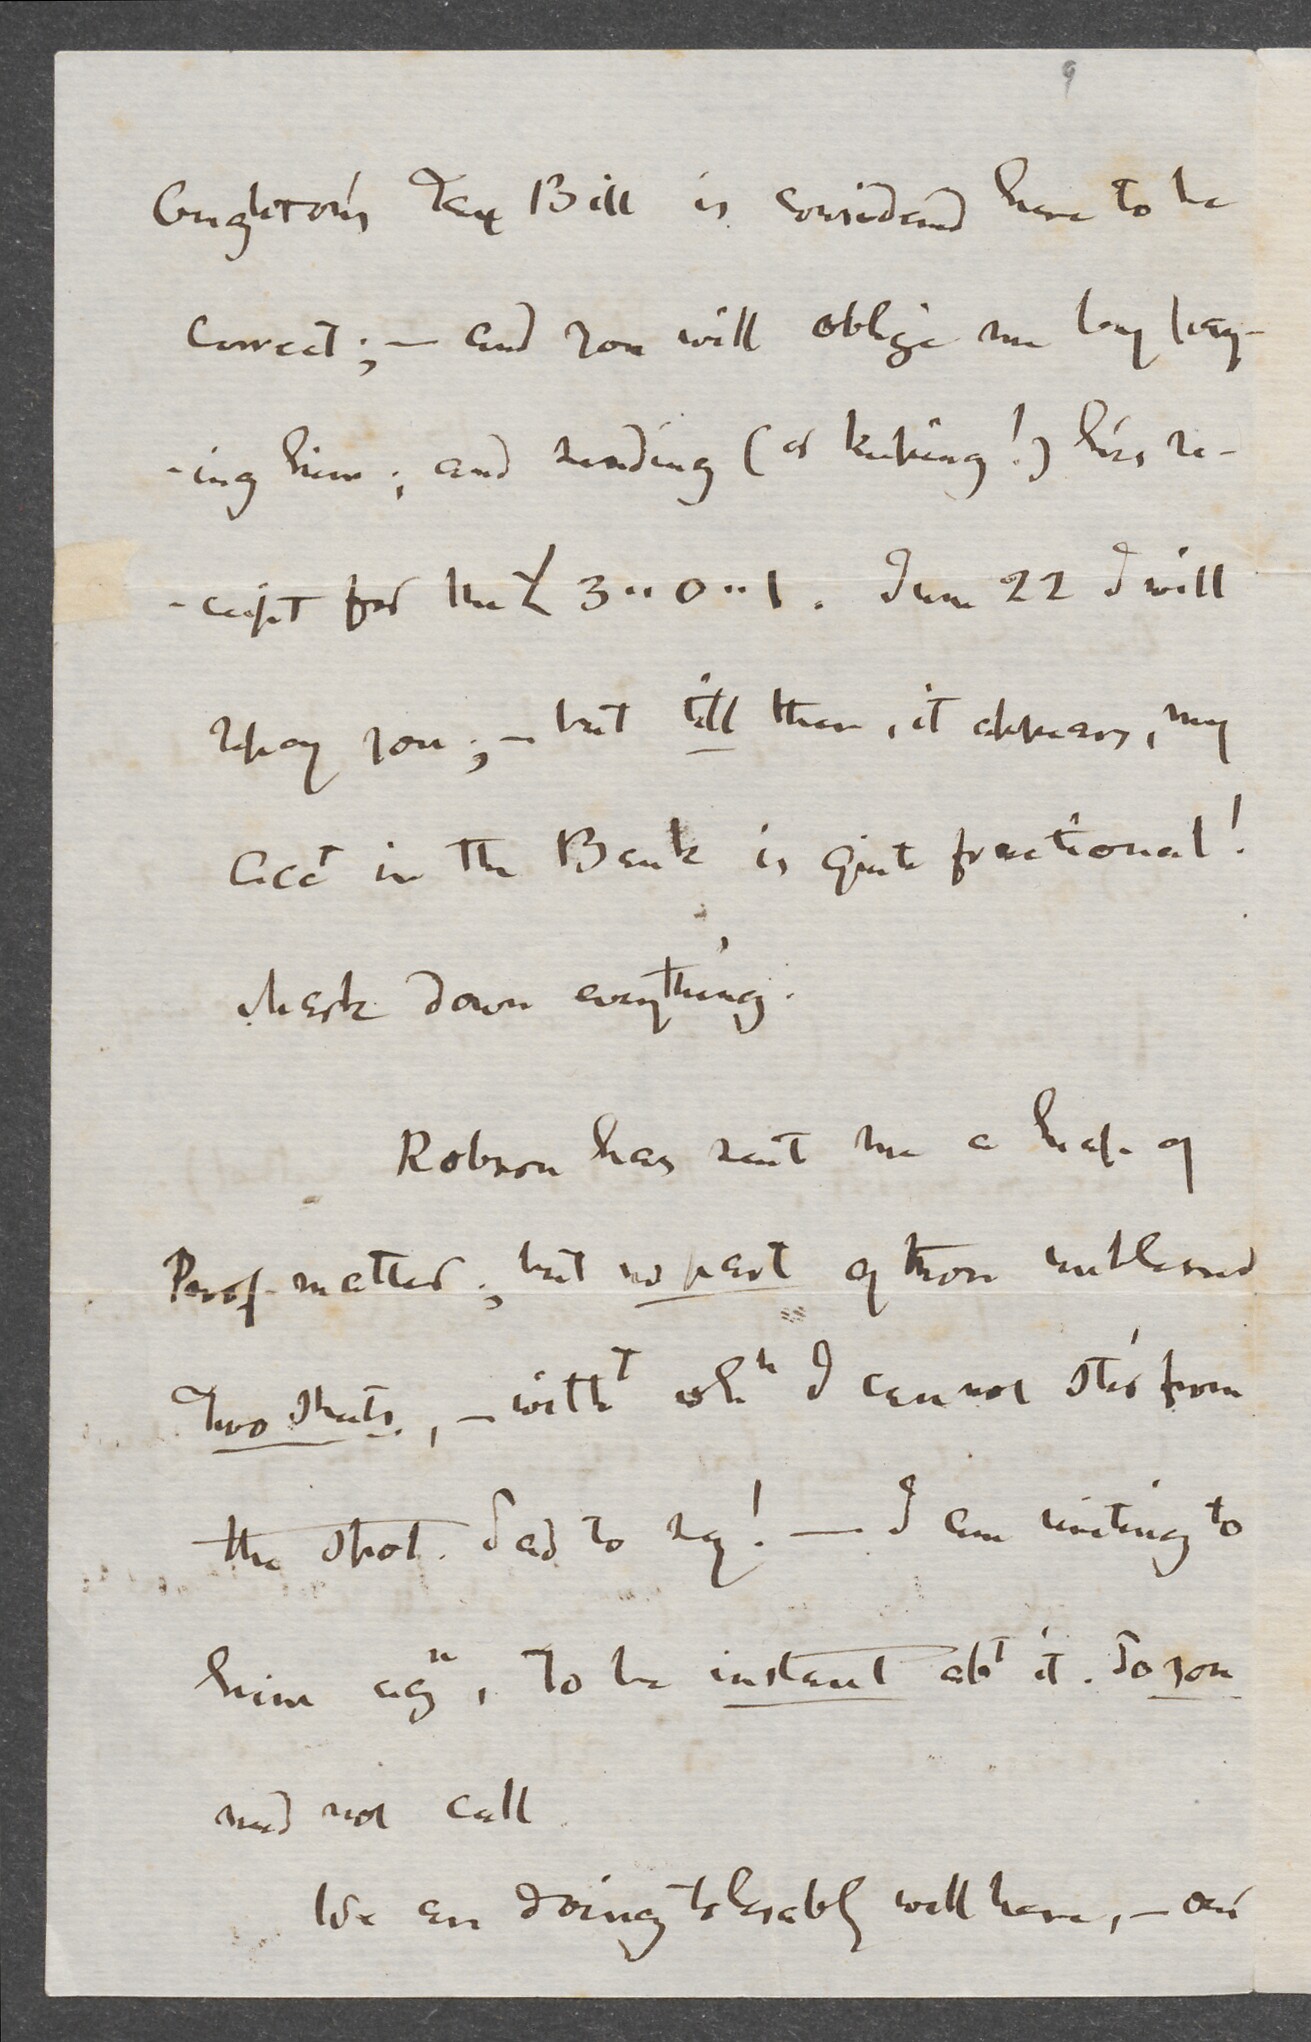 9
Congleton's Tax Bill is considered here to be
correct; — and you will oblige me by pay-
-ing him; and sending (or keeping!) his re-
-ceipt for the £3"0"1. June 22 I will
repay you; — but till then, it appears, my
Acct in the Bank is quite fractional!
Mark down everything.
Robson has sent me a heap of
Proof-matter; but no part of those unblessed
Two sheets, — witht whh I cannot stir from
the spot. Sad to say! — I am writing to
him agn, to be instant abt it. So you
need not call
We are doing tolerably well here, — our